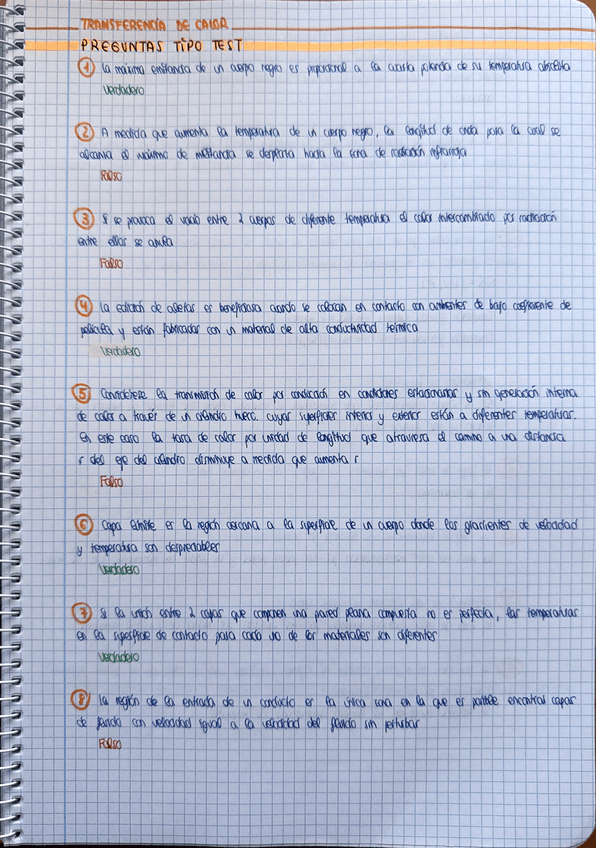 TRANSFERENCIA DE CALOR
PREGUNTAS TIPO TEST
1 La máxima emitancia de un cuerpo negro es proporcional a la cuarta potencia de su temperatura absoluta
Verdadero
2 A medida que aumenta la temperatura de un cuerpo negro, la longitud de onda para la cual se
alcanza el máximo de emitancia se desplaza hacia la zona de radiación infrarroja
Falso
3 Si se provoca el vacío entre 2 cuerpos de diferente temperatura el calor intercambiado por radiación
entre ellos se anula
Falso
4 La adición de aletas es beneficiosa cuando se colocan en contacto con ambientes de bajo coeficiente de
película y están fabricadas con un material de alta conductividad térmica
Verdadero
5 Considérese la transmisión de calor por conducción en condiciones estacionarias y sin generación interna
de calor a través de un cilindro hueco, cuyas superficies interior y exterior están a diferentes temperaturas.
En este caso la tasa de calor por unidad de longitud que atraviesa el camino a una distancia
r del eje del cilindro disminuye a medida que aumenta r
Falso
6 Capa límite es la región cercana a la superficie de un cuerpo donde los gradientes de velocidad
y temperatura son despreciables
Verdadero
7 Si la unión entre 2 capas que componen una pared plana compuesta no es perfecta, las temperaturas
en la superficie de contacto para cada uno de los materiales son diferentes
Verdadero
8 La región de la entrada de un conducto es la única zona en la que es posible encontrar capas
de fluido con velocidad igual a la velocidad del fluido sin perturbar
Falso